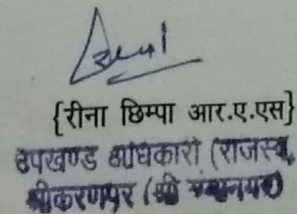 {रीना छिम्पा आर.ए.एस}
उपखण्ड अधिकारी (राजस्व)
श्रीकरणपुर (श्री गंगानगर)